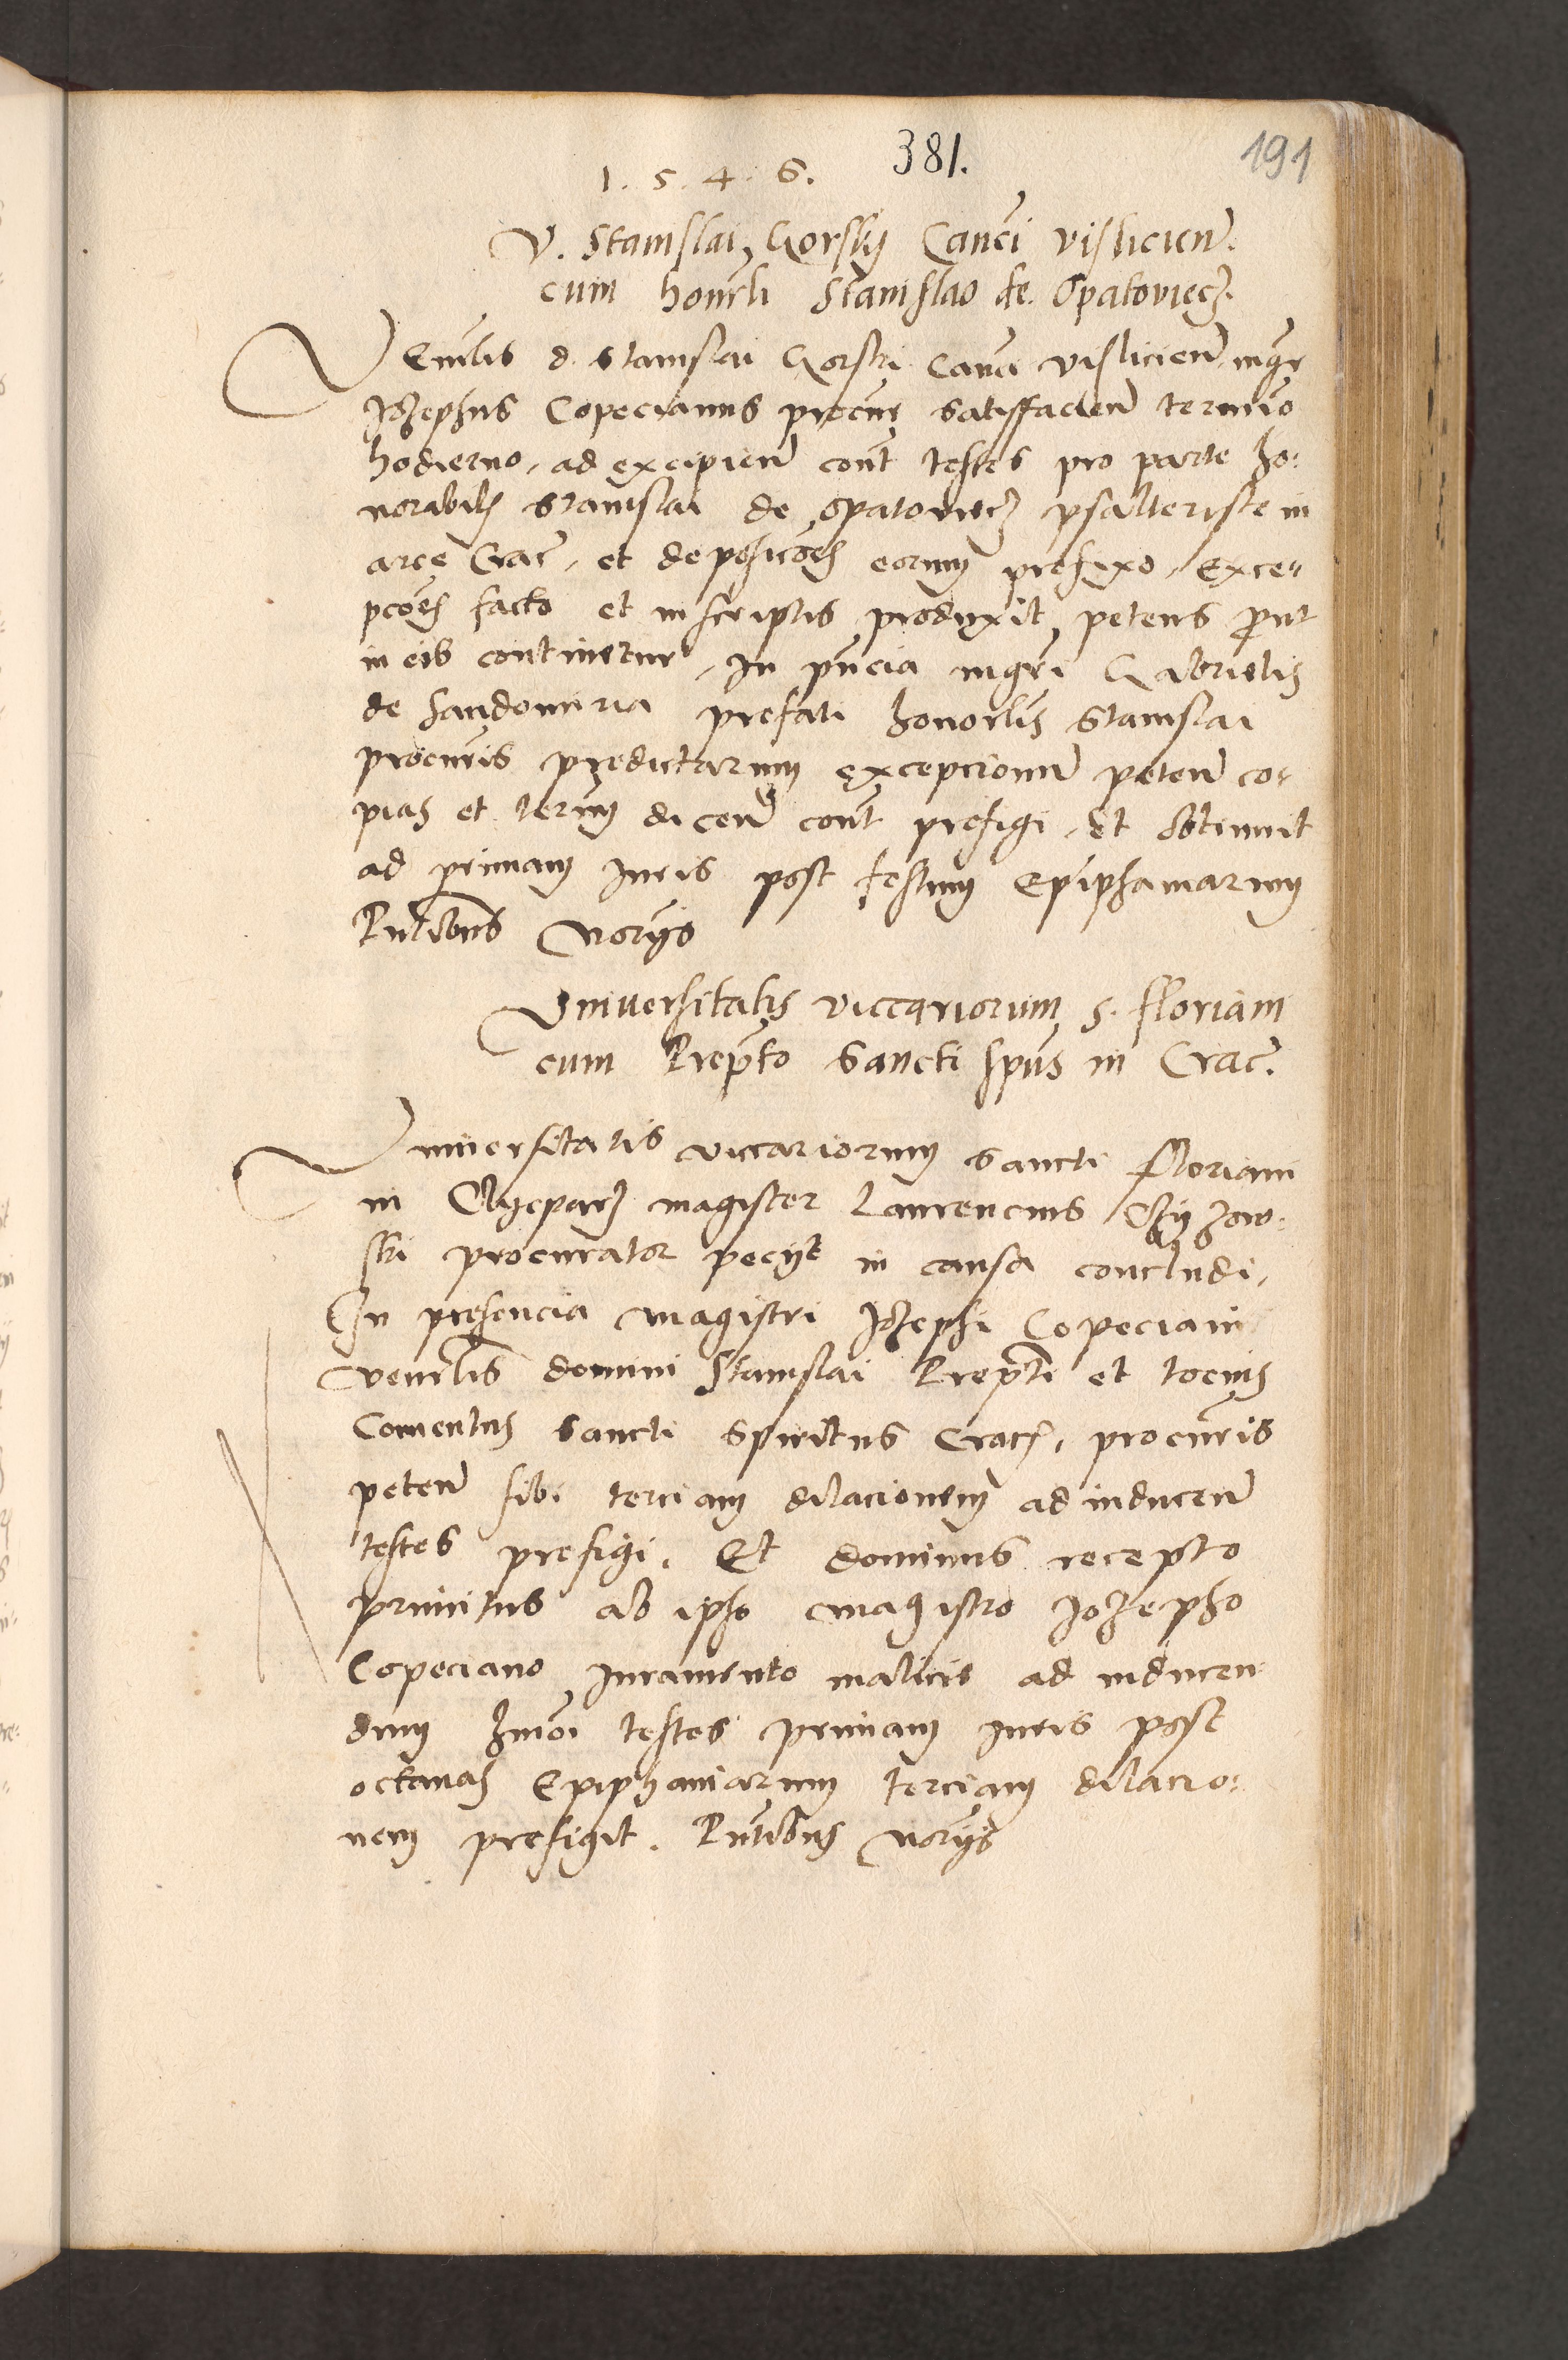 381.
191
1. 5. 4. 6.
V. Stanislai Gorsky Canci vislicien.
cum honrli Stanislao de Opatoviecz.
Venrlis d. Stanislai Gorski Canci vislicien mgr
Jozephus Copecianus procur satisfacien termino
hodierno, ad excipien cont testes pro parte ho:
norabilis Stanislai de Opatoviecz psalteriste in
arce Crac, et deposicoes eorum prefixo, exce-
pcoes facto et in scriptis produxit petens prout
in eis continetur, In pncia mgri Gabrielis
de Sandomiria prefati honorlis Stanislai
procuris predictarum excepcionum peten co-
pias et termm dicend cont prefigi, et obtinuit
ad primam Juris post festum Epiphaniarum
Pntibus Norys
Universitatis viccariorum S. Floriani
cum Prepto Sancti Spus in Crac.
Universitatis viccariorum Sancti Floriani
in Clyeparz magister Laurencius
ski procurator peciit in causa concludi,
In presencia magistri Jozephi Copeciani
venrlis domini Stanislai Prepti et tocius
Conventus Sancti Spiritus Crac, procuris
peten sibi terciam dilacionem ad inducen
testes prefigi. Et dominus recepto
primitus ab ipso magistro Jozepho
Copeciano Juramento malicie ad inducen
dum hmoi testes primam Juris post
octavas Epiphaniarum terciam dilacio:
nem prefigit. Pntibus Norys